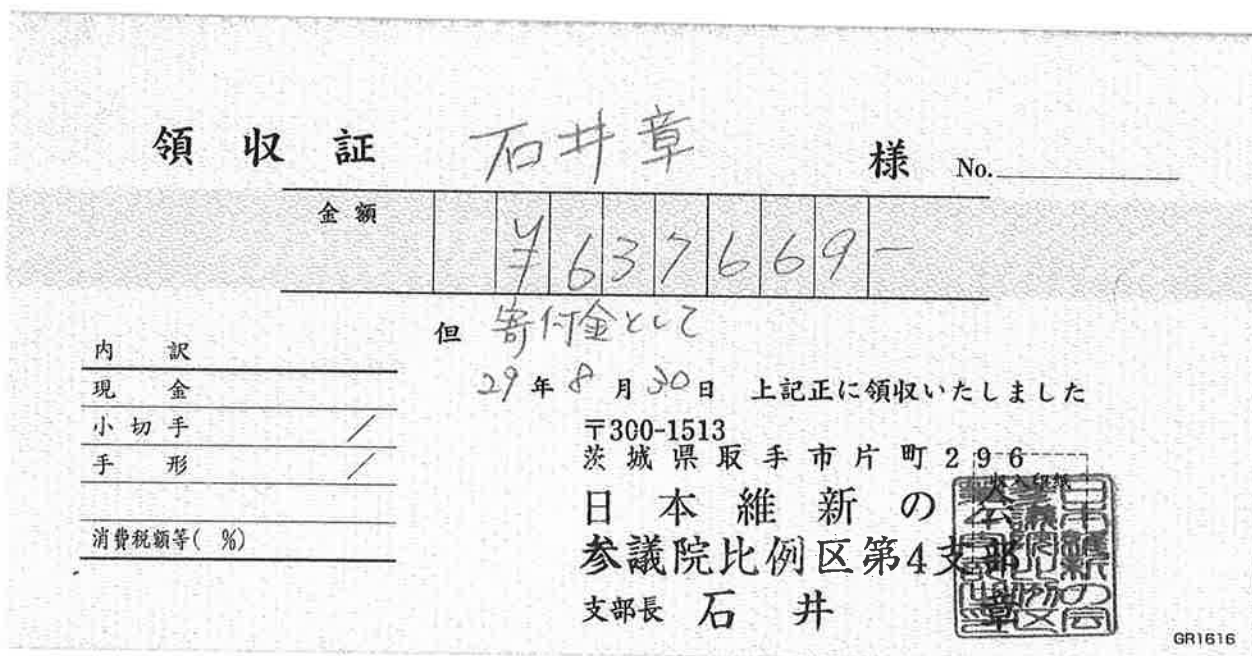 領収証 石井章 様 No.
金額 ¥637669-
但 寄付金として
29年8月30日 上記正に領収いたしました
内訳
現金
小切手 /
手形 /
消費税額等( %)
〒300-1513
茨城県取手市片町296
収入印紙
日本維新の会
参議院比例区第4支部
支部長 石井 章
GR1616